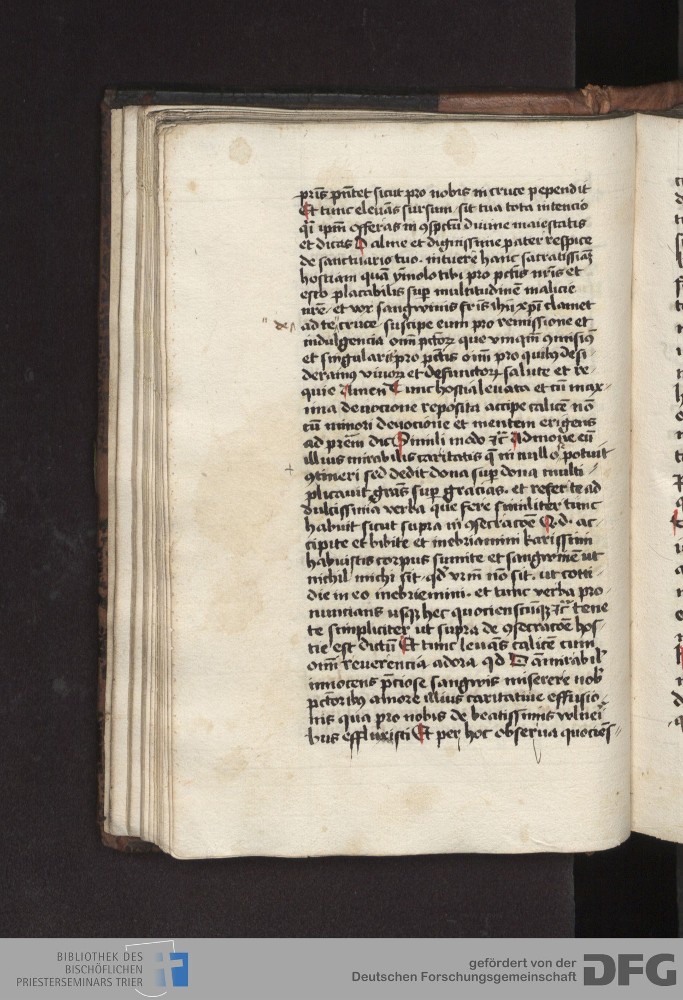 pr̄is pn̄tet sicut pro nobis in cruce pependit
Et tunc eleuās sursum sit tua tota intencio
offeras in diuine maiestatis
et dicas O alme et dignissime pater respice
de sanctuario tuo. intuere hanc sacratissiā
hostiam quā ymolo tibi pro pctīs nr̄is et
esto placabilis sup multitudinē malicie
nr̄e et vox sangwinis fr̄is ih̄u xp̄i clamet
de
ad te cruce suscipe eum pro remissione et
indulgencia om̄ pctōꝝ que vnqm̄
et singularis pro pctīs om̄ pro quibꝰ desi
deramꝰ viuoꝝ et defunctoꝝ salute et re
quie Amen Tunc hostia leuata et cū max
ima deuocione reposita accipe calicē nō
cū minori deuocione et mentem erigens
ad prēm dic Simili modo ⁊c̄ Admone eū
illius mirabilis caritatis q̄ in nullo potuit
ꝯtineri sed dedit dona sup dona multi
plicauit grās sup gracias. et refer te ad
dulcissima verba que fere similiter tunc
habuit sicut supra in ꝯsecracōe Q. d. ac
cipite et bibite et inebriamini karissimi
habuistis corpus sumite et sangwinē ut
nichil michi sit qd̄ vr̄m nō sit. ut cotti
die in eo inebriemini. et tunc verba pro
nuncians usqꝫ hec quocienscūqꝫ ⁊c̄ tene
te simpliciter ut supra de ꝯsecracōe hos
tie est dictū Et tunc leuans calicē cum
om̄i reuerencia adora qd O mirabil
innocens p̄ciose sangwis miserere nob
pctōribꝰ amore illius caritatiue effusio
nis qua pro nobis de beatissimis vulnei
bus effluxisti Et per hoc obserua quociēs
BIBLIOTHEK DES
BISCHÖFLICHEN
PRIESTERSEMINARS TRIER
gefördert von der
Deutschen Forschungsgemeinschaft
DFG